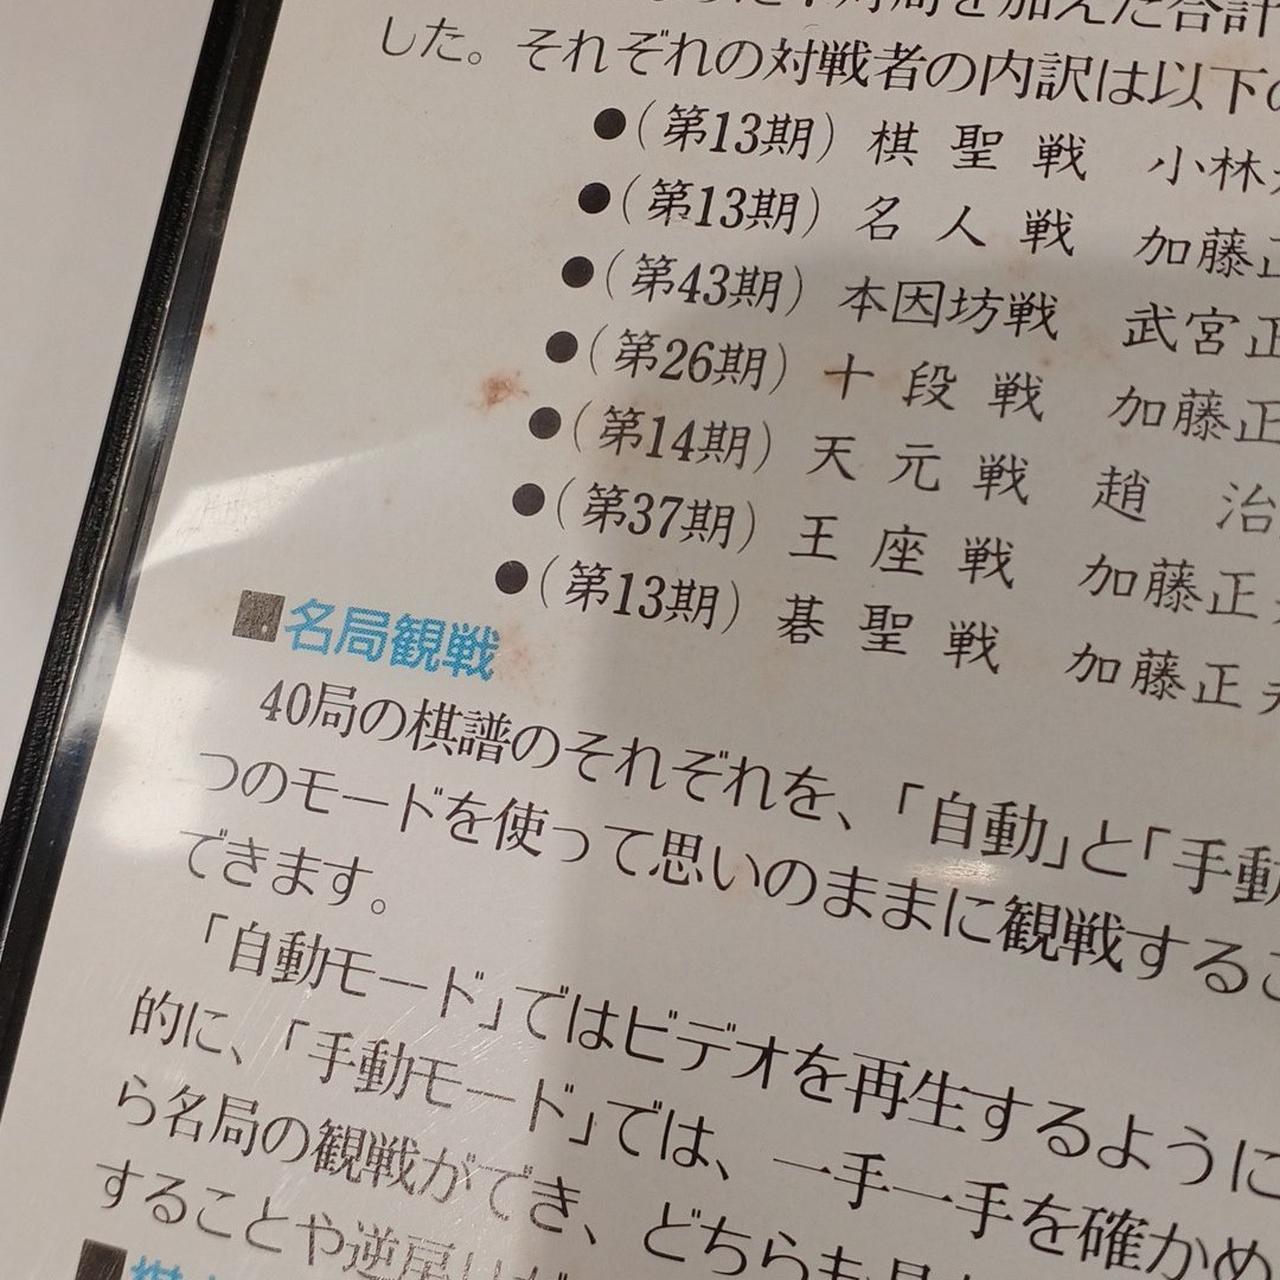 を加えた合計
した。それぞれの対戦者の内訳は以下の
●(第13期) 棋聖戦 小林
●(第13期) 名人戦 加藤正
●(第43期) 本因坊戦 武宮正
●(第26期) 十段戦 加藤正
●(第14期) 天元戦 趙 治
●(第37期) 王座戦 加藤正
●(第13期) 碁聖戦 加藤正夫
■名局観戦
40局の棋譜のそれぞれを、「自動」と「手動
つのモードを使って思いのままに観戦するこ
できます。
「自動モード」ではビデオを再生するように
的に、「手動モード」では、一手一手を確かめ
ら名局の観戦ができ、どちらも
することや逆戻り